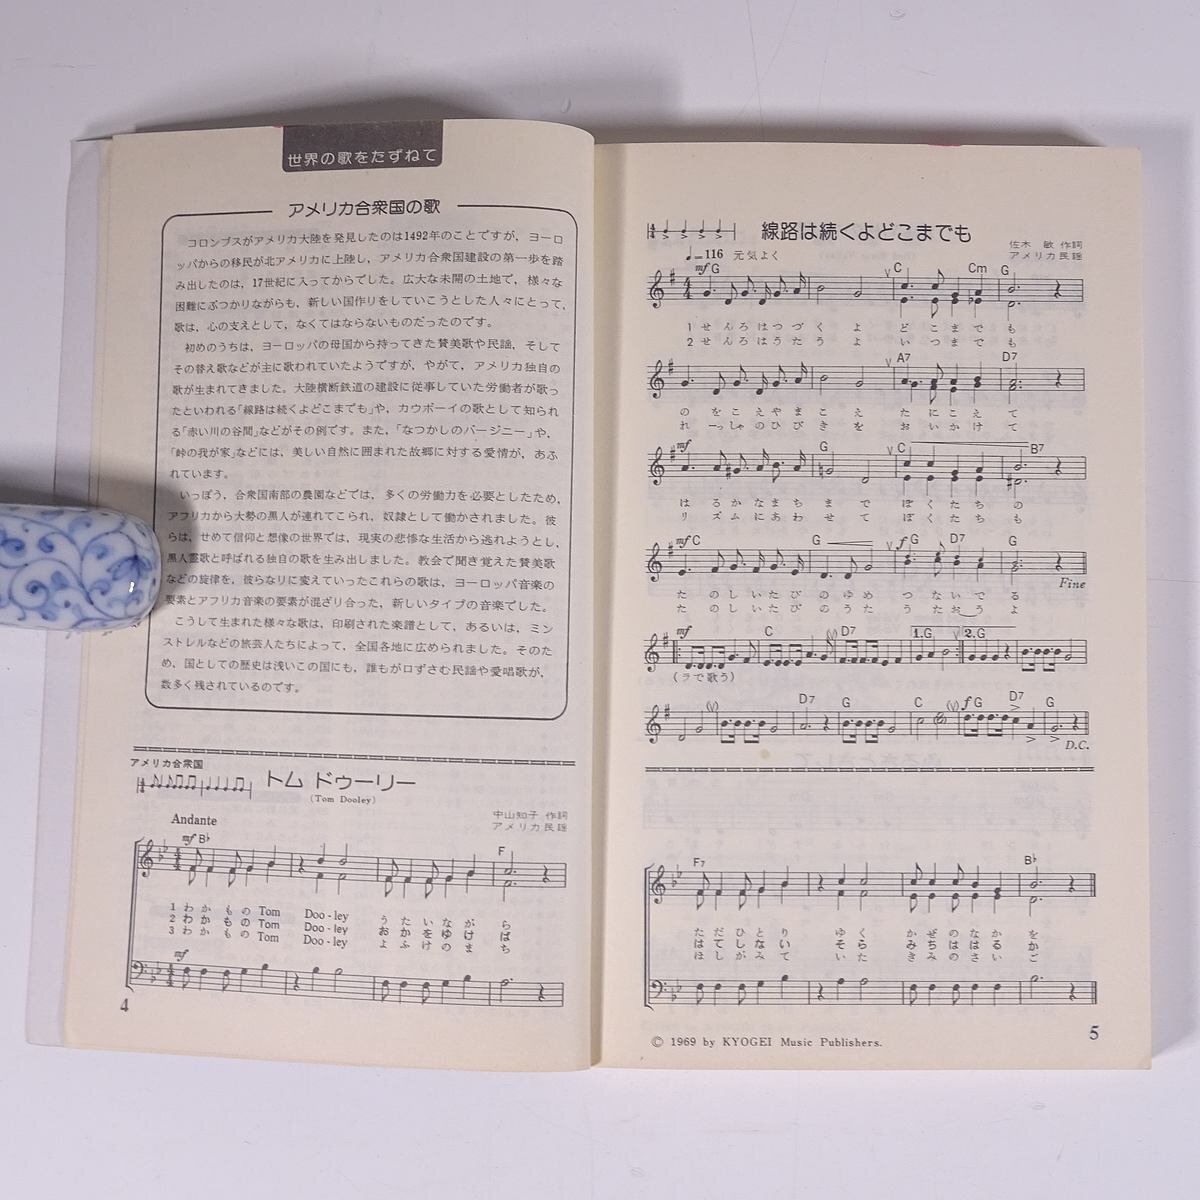 世界の歌をたずねて
アメリカ合衆国の歌
コロンブスがアメリカ大陸を発見したのは1492年のことですが，ヨーロ
ッパからの移民が北アメリカに上陸し，アメリカ合衆国建設の第一歩を踏
み出したのは，17世紀に入ってからでした。広大な未開の土地で，様々な
困難にぶつかりながらも，新しい国作りをしていこうとした人々にとって，
歌は，心の支えとして，なくてはならないものだったのです。
初めのうちは，ヨーロッパの母国から持ってきた賛美歌や民謡，そして
その替え歌などが主に歌われていたようですが，やがて，アメリカ独自の
歌が生まれてきました。大陸横断鉄道の建設に従事していた労働者が歌っ
たといわれる「線路は続くよどこまでも」や，カウボーイの歌として知られ
る「赤い川の谷間」などがその例です。また，「なつかしのバージニー」や，
「峠の我が家」などには，美しい自然に囲まれた故郷に対する愛情が，あふ
れています。
いっぽう，合衆国南部の農園などでは，多くの労働力を必要としたため，
アフリカから大勢の黒人が連れてこられ，奴隷として働かされました。彼
らは，せめて信仰と想像の世界では，現実の悲惨な生活から逃れようとし，
黒人霊歌と呼ばれる独自の歌を生み出しました。教会で聞き覚えた賛美歌
などの旋律を，彼らなりに変えていったこれらの歌は，ヨーロッパ音楽の
要素とアフリカ音楽の要素が混ざり合った，新しいタイプの音楽でした。
こうして生まれた様々な歌は，印刷された楽譜として，あるいは，ミン
ストレルなどの旅芸人たちによって，全国各地に広められました。そのた
め，国としての歴史は浅いこの国にも，誰もが口ずさむ民謡や愛唱歌が，
数多く残されているのです。
アメリカ合衆国
トム ドゥーリー
(Tom Dooley)
中山知子 作詞
アメリカ民謡
Andante
mf B♭ F
1 わかもの Tom Doo-ley うたいながら
2 わかもの Tom Doo-ley おかをゆけば
3 わかもの Tom Doo-ley よふけのまち
mf
4
線路は続くよどこまでも
佐木 敏 作詞
アメリカ民謡
♩=116 元気よく
mf G C Cm G
1 せんろはつづくよ どこまでも
2 せんろはうたうよ いつまでも
A7 D7
のをこえやまこえ たにこえて
れーっしゃのひびきを おいかけて
mf G C B7
はるかなまちまで ぼくたちの
リズムにあわせて ぼくたちも
mf C G f G D7 G
Fine
たのしいたびのゆめ つないでる
たのしいたびのうた うたおうよ
mf C D7 1.G 2.G
(ラで歌う)
D7 G C f G D7 G
D.C.
F7 B♭
ただひとり ゆく かぜのなかを
はてしない そら かちははるか
ほしがみて いた きみのさいご
© 1969 by KYOGEI Music Publishers.
5